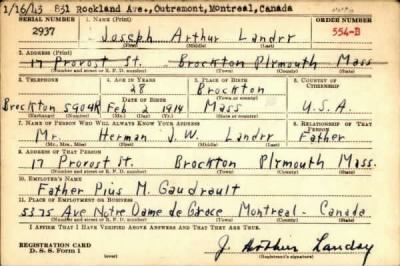 1/16/43 831 Rockland Ave., Outremont, Montreal, Canada
SERIAL NUMBER 1. NAME (Print) ORDER NUMBER
2937 Joseph Arthur Landry 554-B
(First) (Middle) (Last)
2. ADDRESS (Print)
17 Provost St. Brockton Plymouth Mass
(Number and street or R. F. D. number) (Town) (County) (State)
3. TELEPHONE 4. AGE IN YEARS 5. PLACE OF BIRTH 6. COUNTRY OF CITIZENSHIP
28 Brockton
DATE OF BIRTH (Town or county)
Brockton 5904R Feb 2 1914 Mass U.S.A.
(Exchange) (Number) (Mo.) (Day) (Yr.) (State or country)
7. NAME OF PERSON WHO WILL ALWAYS KNOW YOUR ADDRESS 8. RELATIONSHIP OF THAT PERSON
Mr. Herman J.W. Landry Father
(Mr., Mrs., Miss) (First) (Middle) (Last)
9. ADDRESS OF THAT PERSON
17 Provost St. Brockton Plymouth Mass.
(Number and street or R. F. D. number) (Town) (County) (State)
10. EMPLOYER'S NAME
Father Pius M. Gaudrault
11. PLACE OF EMPLOYMENT OR BUSINESS
5375 Ave Notre Dame de Grace Montreal - Canada
(Number and street or R. F. D. number) (Town) (County) (State)
I AFFIRM THAT I HAVE VERIFIED ABOVE ANSWERS AND THAT THEY ARE TRUE.
REGISTRATION CARD
D. S. S. Form 1
J. Arthur Landry
(Registrant's signature)